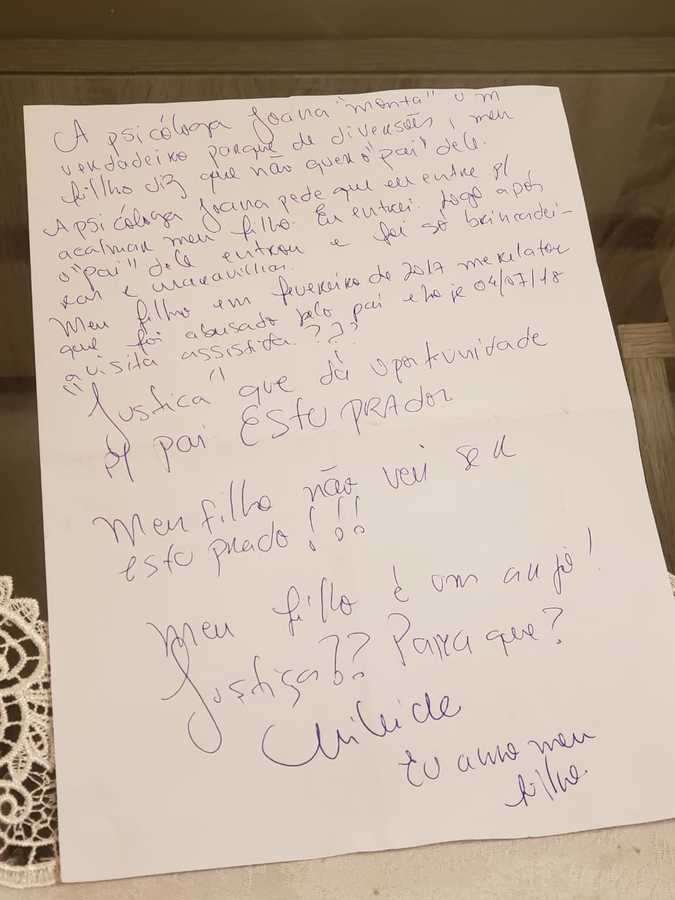 A psicóloga Joana "monta" um
verdadeiro parque de diversões, meu
filho diz que não quer o "pai" dele.
A psicóloga Joana pede que eu entre p/
acalmar meu filho. Eu entrei. Logo após
o "pai" dele entrou e foi só brincadei-
ras e maravilhas.
Meu filho em fevereiro de 2017 me relatou
que foi abusado pelo pai e hoje 04/07/18
a visita assistida???
"Justiça" que dá oportunidade
p/ pai ESTUPRADOR
Meu filho não vai ser
estuprado!!!
Meu filho é um anjo!
Justiça?? Para que?
Eu amo meu
filho